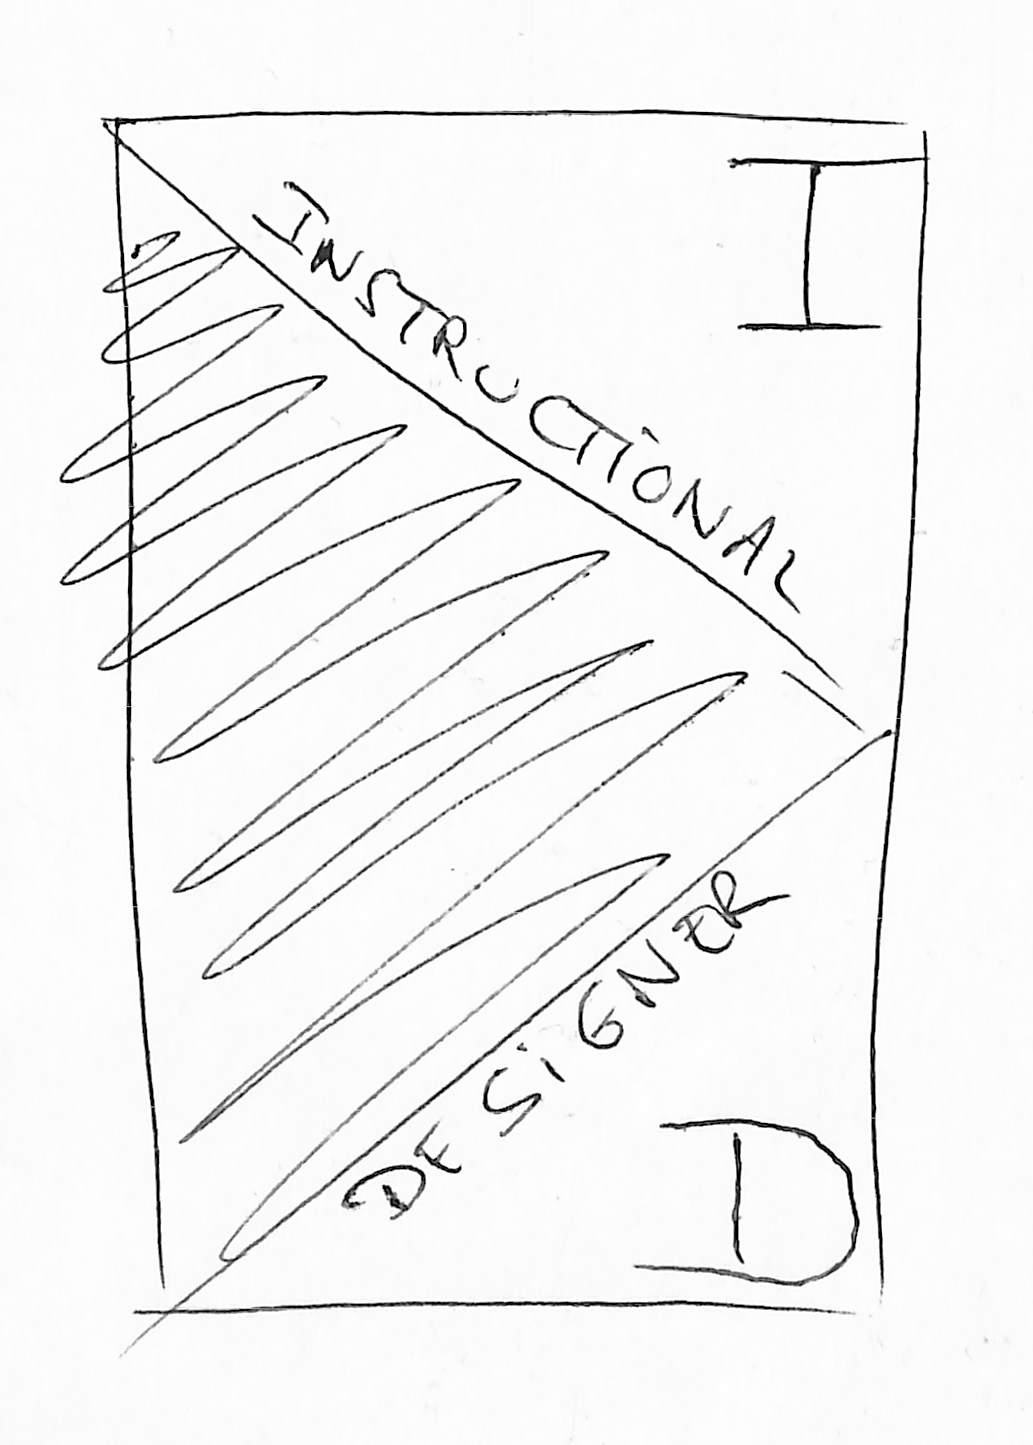 I
INSTRUCTIONAL
DESIGNER
D